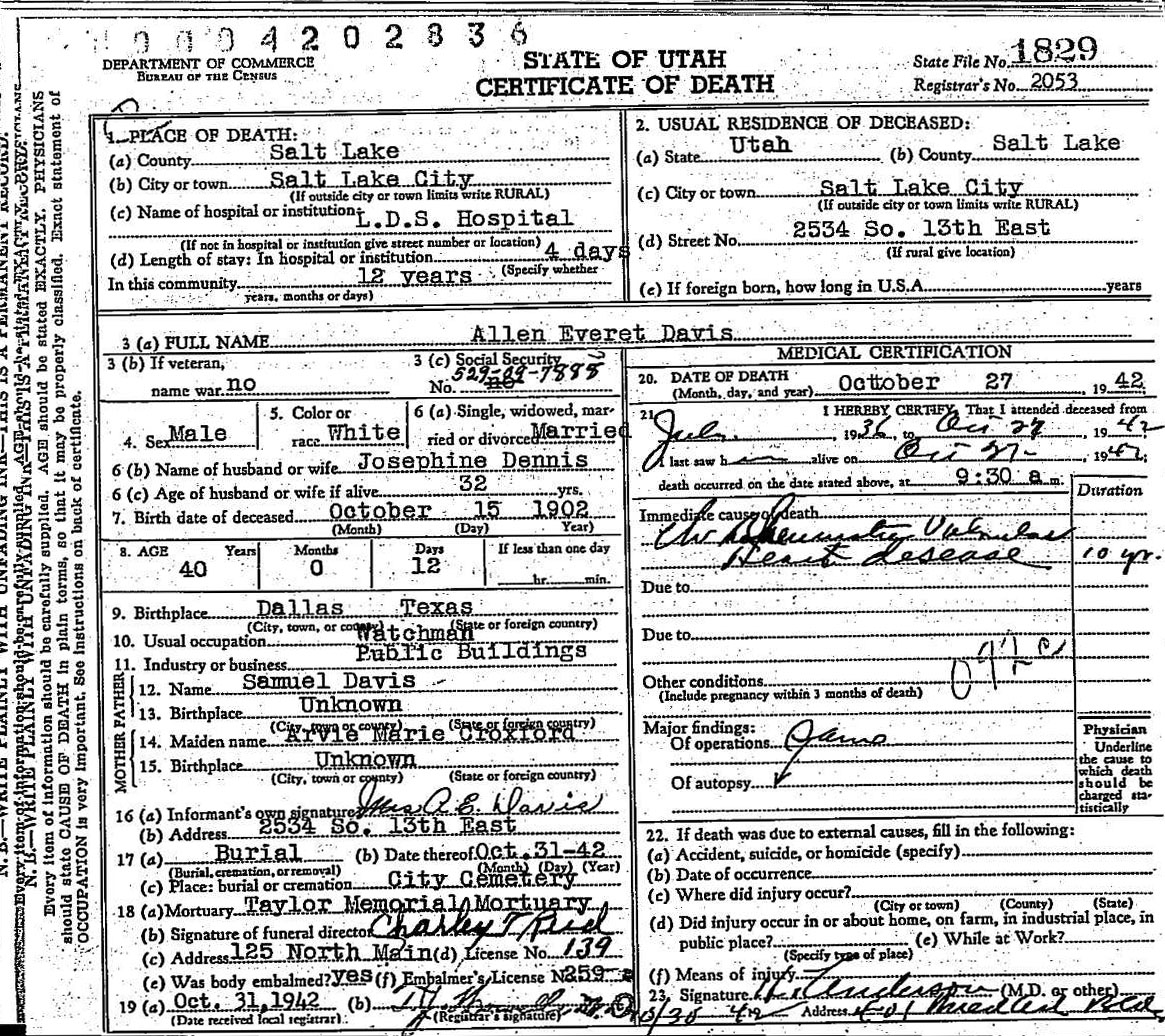 0004202836
DEPARTMENT OF COMMERCE
BUREAU OF THE CENSUS
STATE OF UTAH
CERTIFICATE OF DEATH
State File No. 1829
Registrar's No. 2053
1. PLACE OF DEATH:
(a) County Salt Lake
(b) City or town Salt Lake City
(If outside city or town limits write RURAL)
(c) Name of hospital or institution L.D.S. Hospital
(If not in hospital or institution give street number or location)
(d) Length of stay: In hospital or institution 4 days
(Specify whether
In this community 12 years
years, months or days)
2. USUAL RESIDENCE OF DECEASED:
(a) State Utah (b) County Salt Lake
(c) City or town Salt Lake City
(If outside city or town limits write RURAL)
(d) Street No. 2534 So. 13th East
(If rural give location)
(e) If foreign born, how long in U.S.A. years
3 (a) FULL NAME Allen Everet Davis
3 (b) If veteran,
name war no
3 (c) Social Security
529-09-7888
No. no
4. Sex Male
5. Color or
race White
6 (a) Single, widowed, mar-
ried or divorced Married
6 (b) Name of husband or wife Josephine Dennis
6 (c) Age of husband or wife if alive 32 yrs.
7. Birth date of deceased October 15 1902
(Month) (Day) Year)
8. AGE Years Months Days If less than one day
40 0 12 hr. min.
9. Birthplace Dallas Texas
(City, town, or county) (State or foreign country)
10. Usual occupation Watchman
11. Industry or business Public Buildings
FATHER
12. Name Samuel Davis
13. Birthplace Unknown
(City, town or county) (State or foreign country)
MOTHER
14. Maiden name Arvie Marie Croxford
15. Birthplace Unknown
(City, town or county) (State or foreign country)
16 (a) Informant's own signature Mrs A. E. Davis
(b) Address 2534 So. 13th East
17 (a) Burial (b) Date thereof Oct. 31-42
(Burial, cremation, or removal) (Month) (Day) (Year)
(c) Place: burial or cremation City Cemetery
18 (a) Mortuary Taylor Memorial Mortuary
(b) Signature of funeral director Charley T Reid
(c) Address 125 North Main (d) License No. 139
(e) Was body embalmed? yes (f) Embalmer's License N 259
19 (a) Oct. 31, 1942 (b)
(Date received local registrar) (Registrar's signature)
MEDICAL CERTIFICATION
20. DATE OF DEATH
(Month, day, and year) October 27, 1942
21. I HEREBY CERTIFY, That I attended deceased from
July 1936, to Oct 27 1942
I last saw him alive on Oct 27 1942;
death occurred on the date stated above, at 9:30 a m.
Duration
Immediate cause of death
Chr Rheumatic Valvular
Heart disease 10 yr.
Due to
Due to
Other conditions
(Include pregnancy within 3 months of death)
Major findings:
Of operations
Of autopsy
Physician
Underline
the cause to
which death
should be
charged sta-
tistically
22. If death was due to external causes, fill in the following:
(a) Accident, suicide, or homicide (specify)
(b) Date of occurrence
(c) Where did injury occur?
(City or town) (County) (State)
(d) Did injury occur in or about home, on farm, in industrial place, in
public place? (e) While at Work?
(Specify type of place)
(f) Means of injury
23. Signature Anderson (M.D. or other)
10/30 42 Address 401 Medical Bld.
N. B.—WRITE PLAINLY WITH UNFADING INK—THIS IS A PERMANENT RECORD.
Every item of information should be carefully supplied. AGE should be stated EXACTLY. PHYSICIANS
should state CAUSE OF DEATH in plain terms, so that it may be properly classified. Exact statement of
OCCUPATION is very important. See instructions on back of certificate.